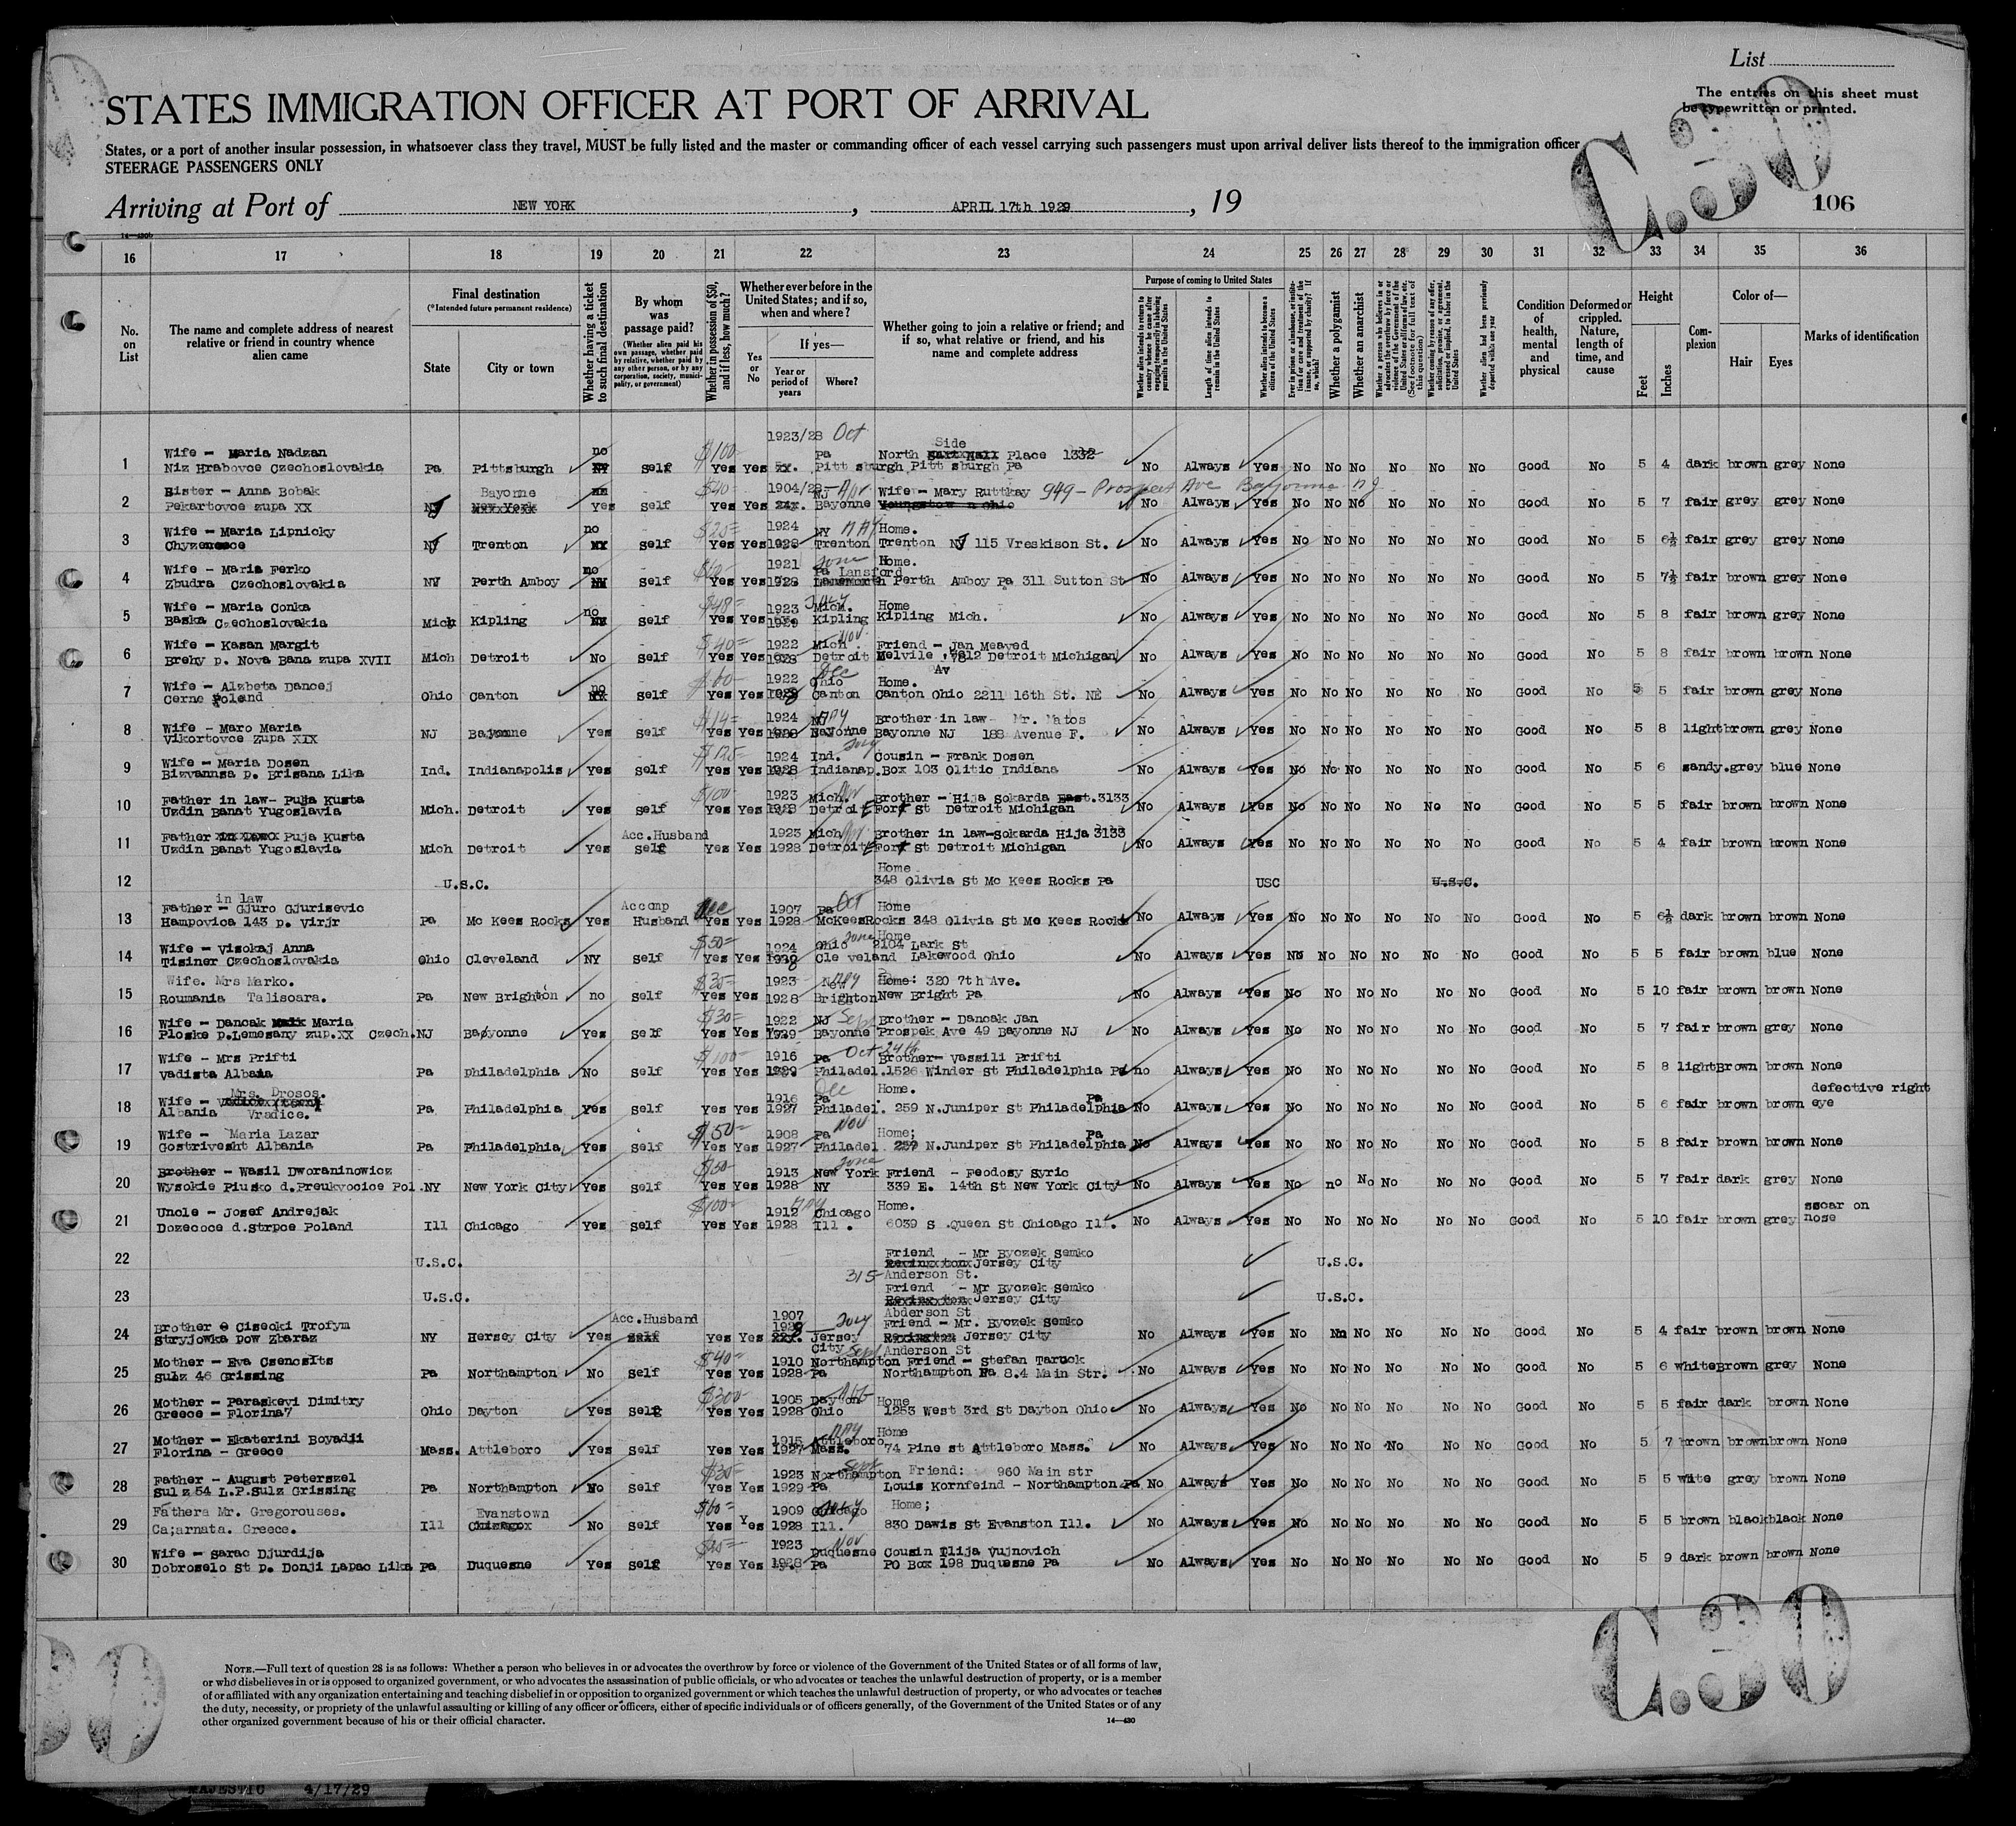 List
The entries on this sheet must
be typewritten or printed.
STATES IMMIGRATION OFFICER AT PORT OF ARRIVAL
C.30
States, or a port of another insular possession, in whatsoever class they travel, MUST be fully listed and the master or commanding officer of each vessel carrying such passengers must upon arrival deliver lists thereof to the immigration officer
STEERAGE PASSENGERS ONLY
Arriving at Port of NEW YORK, APRIL 17th 1929, 19
106
16 17 18 19 20 21 22 23 24 25 26 27 28 29 30 31 32 33 34 35 36
No. on List
The name and complete address of nearest relative or friend in country whence alien came
Final destination
(*Intended future permanent residence)
State
City or town
Whether having a ticket to such final destination
By whom was passage paid?
(Whether alien paid his own passage, whether paid by relative, whether paid by any other person, or by any corporation, society, municipality, or government)
Whether in possession of $50, and if less, how much?
Whether ever before in the United States; and if so, when and where?
Yes or No
If yes—
Year or period of years
Where?
Whether going to join a relative or friend; and if so, what relative or friend, and his name and complete address
Purpose of coming to United States
Length of time alien intends to remain in the United States
Whether alien intends to become a citizen of the United States
Whether a polygamist
Whether an anarchist
Condition of health, mental and physical
Deformed or crippled. Nature, length of time, and cause
Height
Feet
Inches
Complexion
Color of—
Hair
Eyes
Marks of identification
1 Wife - Maria Nadzan Niz Hrabovce Czechoslovakia Pa Pittsburgh no Self $100 Yes Yes 1923/28 Oct Pa Pittsburgh North Side Place 1332 Pittsburgh Pa No Always Yes No No No No No No Good No 5 4 dark brown grey None
2 Sister - Anna Bobak Pekartovce zupa XX NJ Bayonne Yes Self $40 Yes Yes 1904/28 Apr NJ Bayonne Wife - Mary Ruttkay 949 - Prospect Ave Bayonne NJ No Always Yes No No No No No No Good No 5 7 fair grey grey None
3 Wife - Maria Lipnicky NJ Trenton no Self $25 Yes Yes 1924 1928 NY May Trenton Home. Trenton NJ 115 Vreskison St. No Always Yes No No No No No No Good No 5 6½ fair grey grey None
4 Wife - Maria Ferko Zbudra Czechoslovakia NY Perth Amboy no Self Yes Yes 1921 1928 June Pa Lansford Home. Perth Amboy Pa 311 Sutton St No Always Yes No No No No No No Good No 5 7½ fair brown grey None
5 Wife - Maria Conka Baska Czechoslovakia Mich Kipling no Self $48 Yes Yes 1923 1929 Mich. Kipling Home Kipling Mich. No Always Yes No No No No No No Good No 5 8 fair brown grey None
6 Wife - Kasan Margit Brehy p. Nova Bana zupa XVII Mich Detroit No Self $40 Yes Yes 1922 1928 Mich. Nov Detroit Friend - Jan Meaved Melvile Av 7812 Detroit Michigan No Always Yes No No No No No No Good No 5 8 fair brown brown None
7 Wife - Alzbeta Dancej Cerne Poland Ohio Canton no Self $60 Yes Yes 1922 1928 Dec Ohio Canton Home. Canton Ohio 2211 16th St. NE No Always Yes No No No No No No Good No 5 5 fair brown grey None
8 Wife - Maro Maria Vikortovce zupa XIX NJ Bayonne Yes Self $14 Yes Yes 1924 1928 NJ May Bayonne Brother in law - Mr. Matos Bayonne NJ 188 Avenue F. No Always Yes No No No No No No Good No 5 8 light brown grey None
9 Wife - Maria Dosen Bizvannsa p. Brisana Lika Ind. Indianapolis Yes Self $125 Yes Yes 1924 1928 Ind. Indianap. Cousin - Frank Dosen Box 103 Olitic Indiana No Always Yes No No No No No No Good No 5 6 sandy. grey blue None
10 Father in law- Puja Kusta Uzdin Banat Yugoslavia Mich. Detroit Yes Self $100 Yes Yes 1923 1928 Mich. Detroit Brother - Hija Sokarda 3133 E Fort St Detroit Michigan No Always Yes No No No No No No Good No 5 5 fair brown brown None
11 Father Puja Kusta Uzdin Banat Yugoslavia Mich Detroit Yes Acc. Husband Self Yes Yes 1923 1928 Mich Detroit Brother in law-Sokarda Hija 3133 E Fort St Detroit Michigan No Always Yes No No No No No No Good No 5 4 fair brown brown None
12 U.S.C. Home 348 Olivia St Mc Kees Rocks Pa USC U.S.C.
13 Father in law - Gjuro Gjurisevic Hampovica 143 p. Virjr Pa Mc Kees Rocks Yes Accomp Husband Yes Yes 1907 1928 Pa Oct McKeesRocks Home 348 Olivia St Mc Kees Rocks No Always Yes No No No No No No Good No 5 6½ dark brown brown None
14 Wife - Visokaj Anna Tisiner Czechoslovakia Ohio Cleveland NY Self $50 Yes Yes 1924 1928 Ohio June Cleveland Home 2104 Lark St Lakewood Ohio No Always Yes No No No No No No Good No 5 5 fair brown blue None
15 Wife. Mrs Marko. Roumania Talisoara. Pa New Brighton no Self $35 Yes Yes 1923 1928 Brighton Home: 320 7th Ave. New Bright Pa No Always Yes No No No No No No Good No 5 10 fair brown brown None
16 Wife - Dancak Maria Ploske p.Lemesany zup.XX Czech. NJ Bayonne Yes Self $30 Yes Yes 1922 1929 NJ Sep Bayonne Brother - Dancak Jan Prospek Ave 49 Bayonne NJ No Always Yes No No No No No No Good No 5 7 fair brown grey None
17 Wife - Mrs Prifti Vadista Albaia Pa Philadelphia No Self $100 Yes Yes 1916 1929 Pa Oct 24th Philadel. Brother- Vassili Prifti 1526 Winder St Philadelphia Pa no Always Yes No No No No No No Good No 5 8 light Brown brown None
18 Wife - Mrs. Drosos. Albania Vradice. Pa Philadelphia Yes Self Yes Yes 1916 1927 Dec Pa Philadel. Home. 259 N.Juniper St Philadelphia Pa No Always Yes No No No No No No Good No 5 6 fair brown brown defective right eye
19 Wife - Maria Lazar Gostrivesht Albania Pa Philadelphia Yes Self $50 Yes Yes 1908 1927 Pa Nov Philadel Home; 257 N.Juniper St Philadelphia Pa No Always Yes No No No No No No Good No 5 8 fair brown brown None
20 Brother - Wasil Dworaninowicz Wysokie Piusko d.Preukvocice Pol. NY New York City Yes Self $50 Yes Yes 1913 1928 June New York NY Friend - Feodosy Syric 339 E. 14th St New York City No Always Yes No no No No No No Good No 5 7 fair dark grey None
21 Uncle - Josef Andrejak Dozecoce d.strpce Poland Ill Chicago Yes Self $100 Yes Yes 1912 1928 May Chicago Ill. Home. 6039 S .Queen St Chicago Ill. No Always Yes No No No No No No Good No 5 10 fair brown grey sscar on nose
22 U.S.C. Friend - Mr Byczek Semko Jersey City 315 Anderson St. U.S.C.
23 U.S.C. Friend - Mr Byczek Semko Jersey City Abderson St U.S.C.
24 Brother Cisecki Trofym Stryjowka pow Zbaraz NY Hersey City Yes Acc.Husband Yes Yes 1907 1928 July Jersey City Friend - Mr. Byczek Semko Jersey City Anderson St No Always Yes No No No No No No Good No 5 4 fair brown brown None
25 Mother - Eva Csencsits Sulz 46 Grissing Pa Northampton No Self $40 Yes Yes 1910 1928 Sept Northampton Pa Friend - Stefan Taruck Northampton Pa 8.4 Main Str. No Always Yes No No No No No No Good No 5 6 white Brown grey None
26 Mother - Paraskevi Dimitry Greece - Florina7 Ohio Dayton Yes Self $300 Yes Yes 1905 1928 Dayton Ohio Home 1253 West 3rd St Dayton Ohio No Always Yes No No No No No No Good No 5 5 fair dark brown None
27 Mother - Ekaterini Boyadji Florina - Greece Mass. Attleboro Yes Self Yes Yes 1915 1927 May Attleboro Mass. Home 74 Pine st Attleboro Mass. No Always Yes No No No No No No Good No 5 7 brown brown brown None
28 Father - August Peterszel Sulz 54 L.P.Sulz Grissing Pa Northampton No Self $30 Yes Yes 1923 1929 Sept Northampton Pa Friend: 960 Main str Louis Kornfeind - Northampton Pa No Always Yes No No No No No No Good No 5 5 wite grey brown None
29 Fathera Mr. Gregorouses. Ca;arnata. Greece. Ill Evanstown No Self $60 Yes Yes 1909 1928 Chicago Ill. Home; 830 Dawis St Evanston Ill. No Always Yes No No No No No No Good No 5 5 brown black black None
30 Wife - Sarac Djurdija Dobroselo St p. Donji Lapac Lika Pa Duquesne Yes Self Yes Yes 1923 1928 Nov Duquesne Pa Cousin Ilija Vujnovich PO Box 198 Duquesne Pa No Always Yes No No No No No No Good No 5 9 dark brown brown None
C.30
NOTE.—Full text of question 28 is as follows: Whether a person who believes in or advocates the overthrow by force or violence of the Government of the United States or of all forms of law,
or who disbelieves in or is opposed to organized government, or who advocates the assassination of public officials, or who advocates or teaches the unlawful destruction of property, or is a member
of or affiliated with any organization entertaining and teaching disbelief in or opposition to organized government or which teaches the unlawful destruction of property, or who advocates or teaches
the duty, necessity, or propriety of the unlawful assaulting or killing of any officer or officers, either of specific individuals or of officers generally, of the Government of the United States or of any
other organized government because of his or their official character.
14—430
MAJESTIC 4/17/29